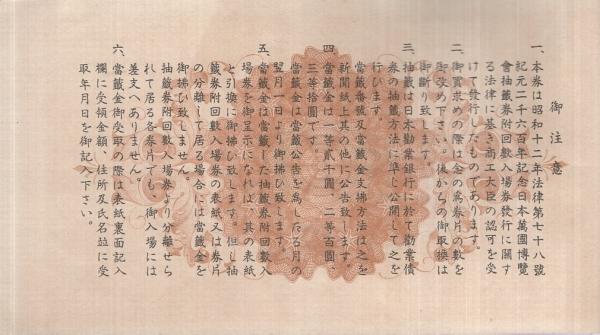 御注意
一、本券は昭和十二年法律第七十八號
紀元二千六百年記念日本萬國博覽
會抽籤券附回數入場券發行に關す
る法律に基き商工大臣の認可を受
けて發行したものであります。
二、御買求めの際は念の爲券片の數を
御改め下さい。後からの御取換は
御斷り致します。
三、抽籤は日本勸業銀行に於て勸業債
券の抽籤方法に準じ公開して之を
行ひます。
當籤番號及當籤金支拂方法は之を
新聞紙上其の他に公告致します。
四、當籤金は一等貳千圓、二等百圓、
三等拾圓です。
當籤金は當籤公告を爲したる月の
翌月一日より御拂ひ致します。
五、當籤金は當籤した抽籤券附回數入
場券を御呈示になれば、其の表紙
と引換に御拂ひ致します。但し抽
籤券附回數入場券の表紙又は券片
の分離して居る場合には當籤金を
御拂ひ致しません。
抽籤券附回數入場券より分離せら
れて居る各券片でも、御入場には
差支へありません。
六、當籤金御受取の際は表紙裏面記入
欄に受領金額、住所及氏名竝に受
取年月日を御記入下さい。